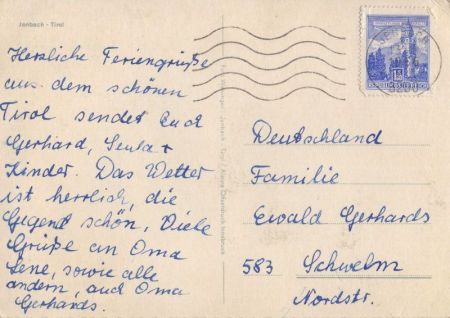 Jenbach - Tirol
Herzliche Feriengrüße
aus dem schönen
Tirol sendet Euch
Gerhard, Senta +
Kinder. Das Wetter
ist herrlich, die
Gegend schön, Viele
Grüße an Oma
Lene, sowie alle
andern, auch Oma
Gerhards.
REPUBLIK ÖSTERREICH
Deutschland
Familie
Ewald Gerhards
583 Schwelm
Nordstr.